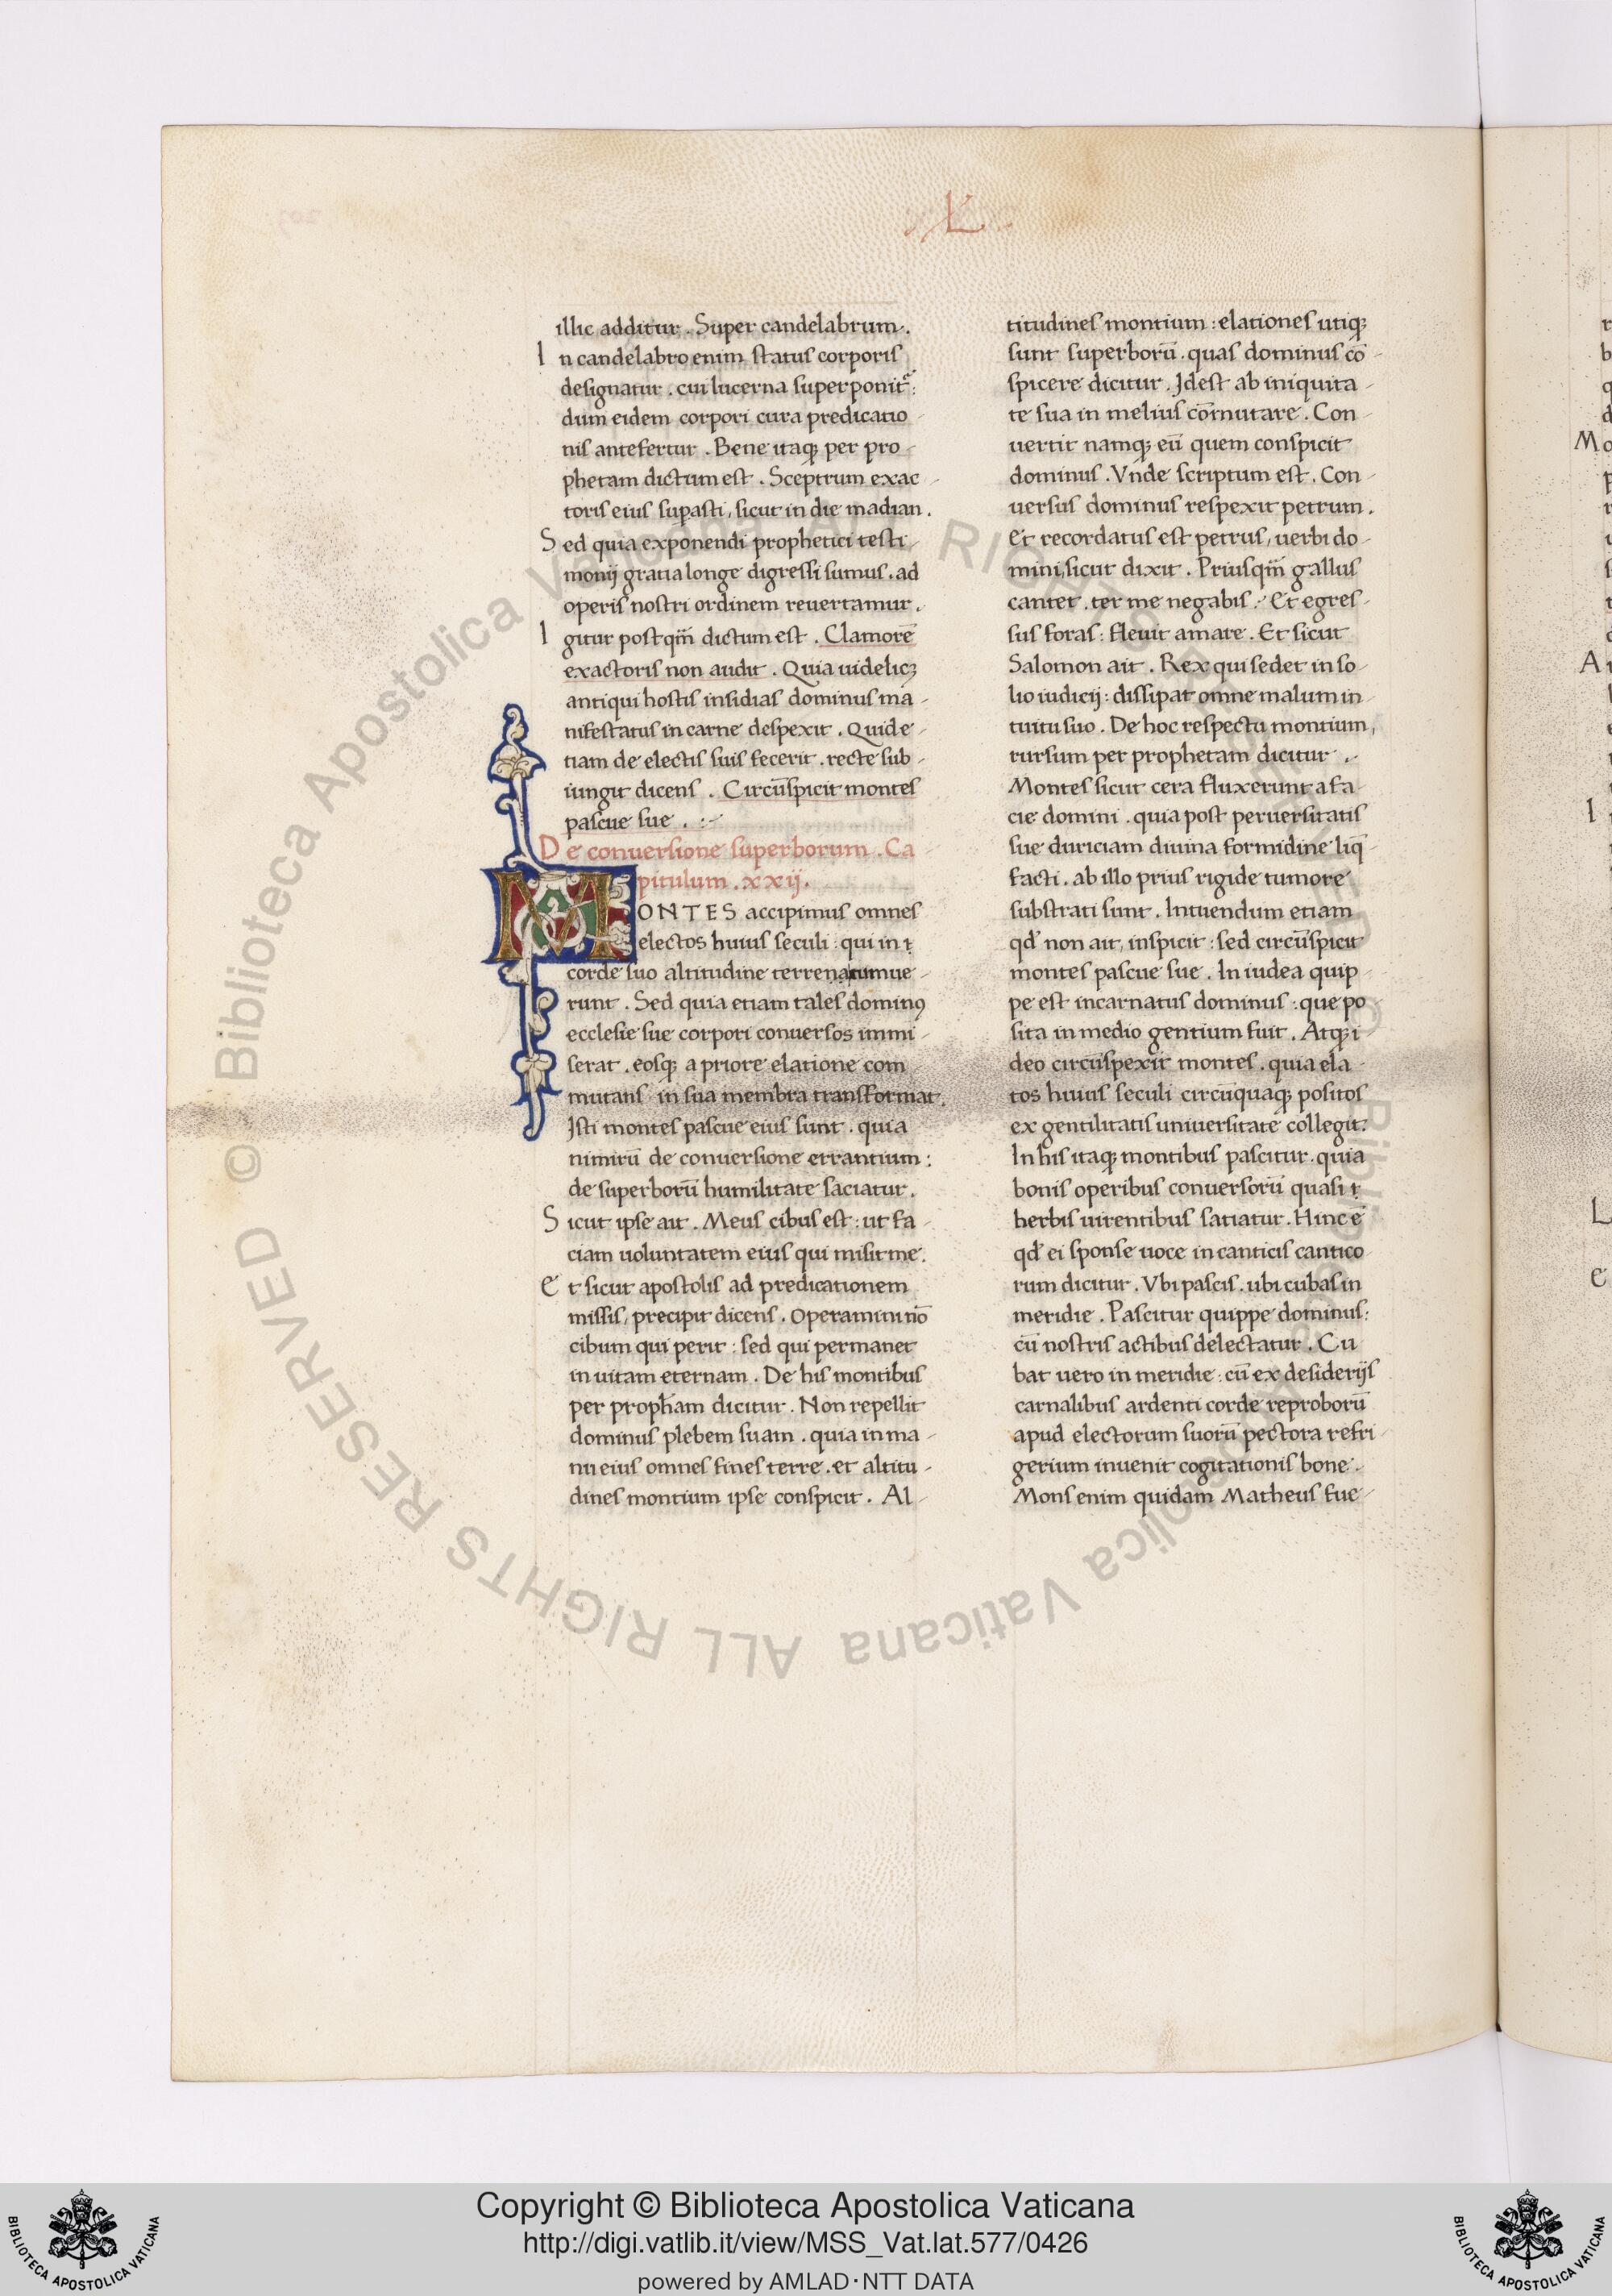 L
illic additur . Super candelabrum .
In candelabro enim status corporis
designatur . cui lucerna superponit᷑ :
dum eidem corpori cura predicatio
nis antefertur . Bene itaqꝫ per pro
phetam dictum est . Sceptrum exac
toris eius supasti, sicut in die madian .
Sed quia exponendi prophetici testi
monij gratia longe digressi sumus . ad
operis nostri ordinem revertamur .
Igitur postqm̄ dictum est . Clamorē
exactoris non audit . Quia uidelicꝫ
antiqui hostis insidias dominus ma
nifestatus in carne despexit . Quid e
tiam de electis suis fecerit . recte sub
iungit dicens . Circūspicit montes
pascue sue . :~
De conuersione superborum . Ca
pitulum . xxij .
MONTES accipimus omnes
electos huius seculi : qui in
corde suo altitudine terrena tumue
runt . Sed quia etiam tales dominꝰ
ecclesie sue corpori conuersos immi
serat . eosqꝫ a priore elatione com
mutans in sua membra transformat .
Isti montes pascue eius sunt . quia
nimirū de conuersione errantium :
de superborū humilitate saciatur .
Sicut ipse ait . Meus cibus est : ut fa
ciam uoluntatem eius qui misit me .
Et sicut apostolis ad predicationem
missis, precipit dicens . Operamini nō
cibum qui perit : sed qui permanet
in uitam eternam . De his montibus
per proph̄am dicitur . Non repellit
dominus plebem suam . quia in ma
nu eius omnes fines terre . et altitu
dines montium ipse conspicit . Al
titudines montium : elationes utiqꝫ
sunt superborū . quas dominus cō
spicere dicitur . Idest ab iniquita
te sua in melius cōmutare . Con
uertit namqꝫ eū quem conspicit
dominus . Vnde scriptum est . Con
uersus dominus respexit petrum .
Et recordatus est petrus, uerbi do
mini, sicut dixit . Priusqm̄ gallus
cantet . ter me negabis . Et egres
sus foras : fleuit amare . Et sicut
Salomon ait . Rex qui sedet in so
lio iudicij : dissipat omne malum in
tuitu suo . De hoc respectu montium,
rursum per prophetam dicitur .
Montes sicut cera fluxerunt a fa
cie domini . quia post peruersitatis
sue duriciam diuina formidine liq̄
facti . ab illo prius rigide tumore
substrati sunt . Intuendum etiam
qd̄ non ait, inspicit : sed circūspicit
montes pascue sue . In iudea quip
pe est incarnatus dominus : que po
sita in medio gentium fuit . Atqꝫ i
deo circūspexit montes . quia ela
tos huius seculi circūquaqꝫ positos
ex gentilitatis uniuersitate collegit .
In his itaqꝫ montibus pascitur . quia
bonis operibus conuersorū quasi
herbis uirentibus satiatur . Hinc ē
qd̄ ei sponse uoce in canticis cantico
rum dicitur . Vbi pascis . ubi cubas in
meridie . Pascitur quippe dominus :
cū nostris actibus delectatur . Cu
bat uero in meridie : cū ex desiderijs
carnalibus ardenti corde reproborū
apud electorum suorū pectora refri
gerium inuenit cogitationis bone .
Mons enim quidam Matheus fue
Copyright © Biblioteca Apostolica Vaticana
http://digi.vatlib.it/view/MSS_Vat.lat.577/0426
powered by AMLAD·NTT DATA
BIBLIOTECA APOSTOLICA VATICANA
BIBLIOTECA APOSTOLICA VATICANA
© Biblioteca Apostolica Vaticana ALL RIGHTS RESERVED
© Biblioteca Apostolica Vaticana ALL RIGHTS RESERVED